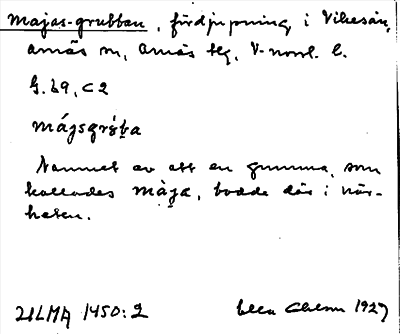 Majas-grubban, fördjupning i Vikesån,
Arnäs sn, Arnäs hg, V-norrl. l.
G. 69, C 2
májsgrṕba
Namnet av att en gumma, som
kallades màja, bodde där i när-
heten.
ULMA 1450:2 Ella Ohlson 1927